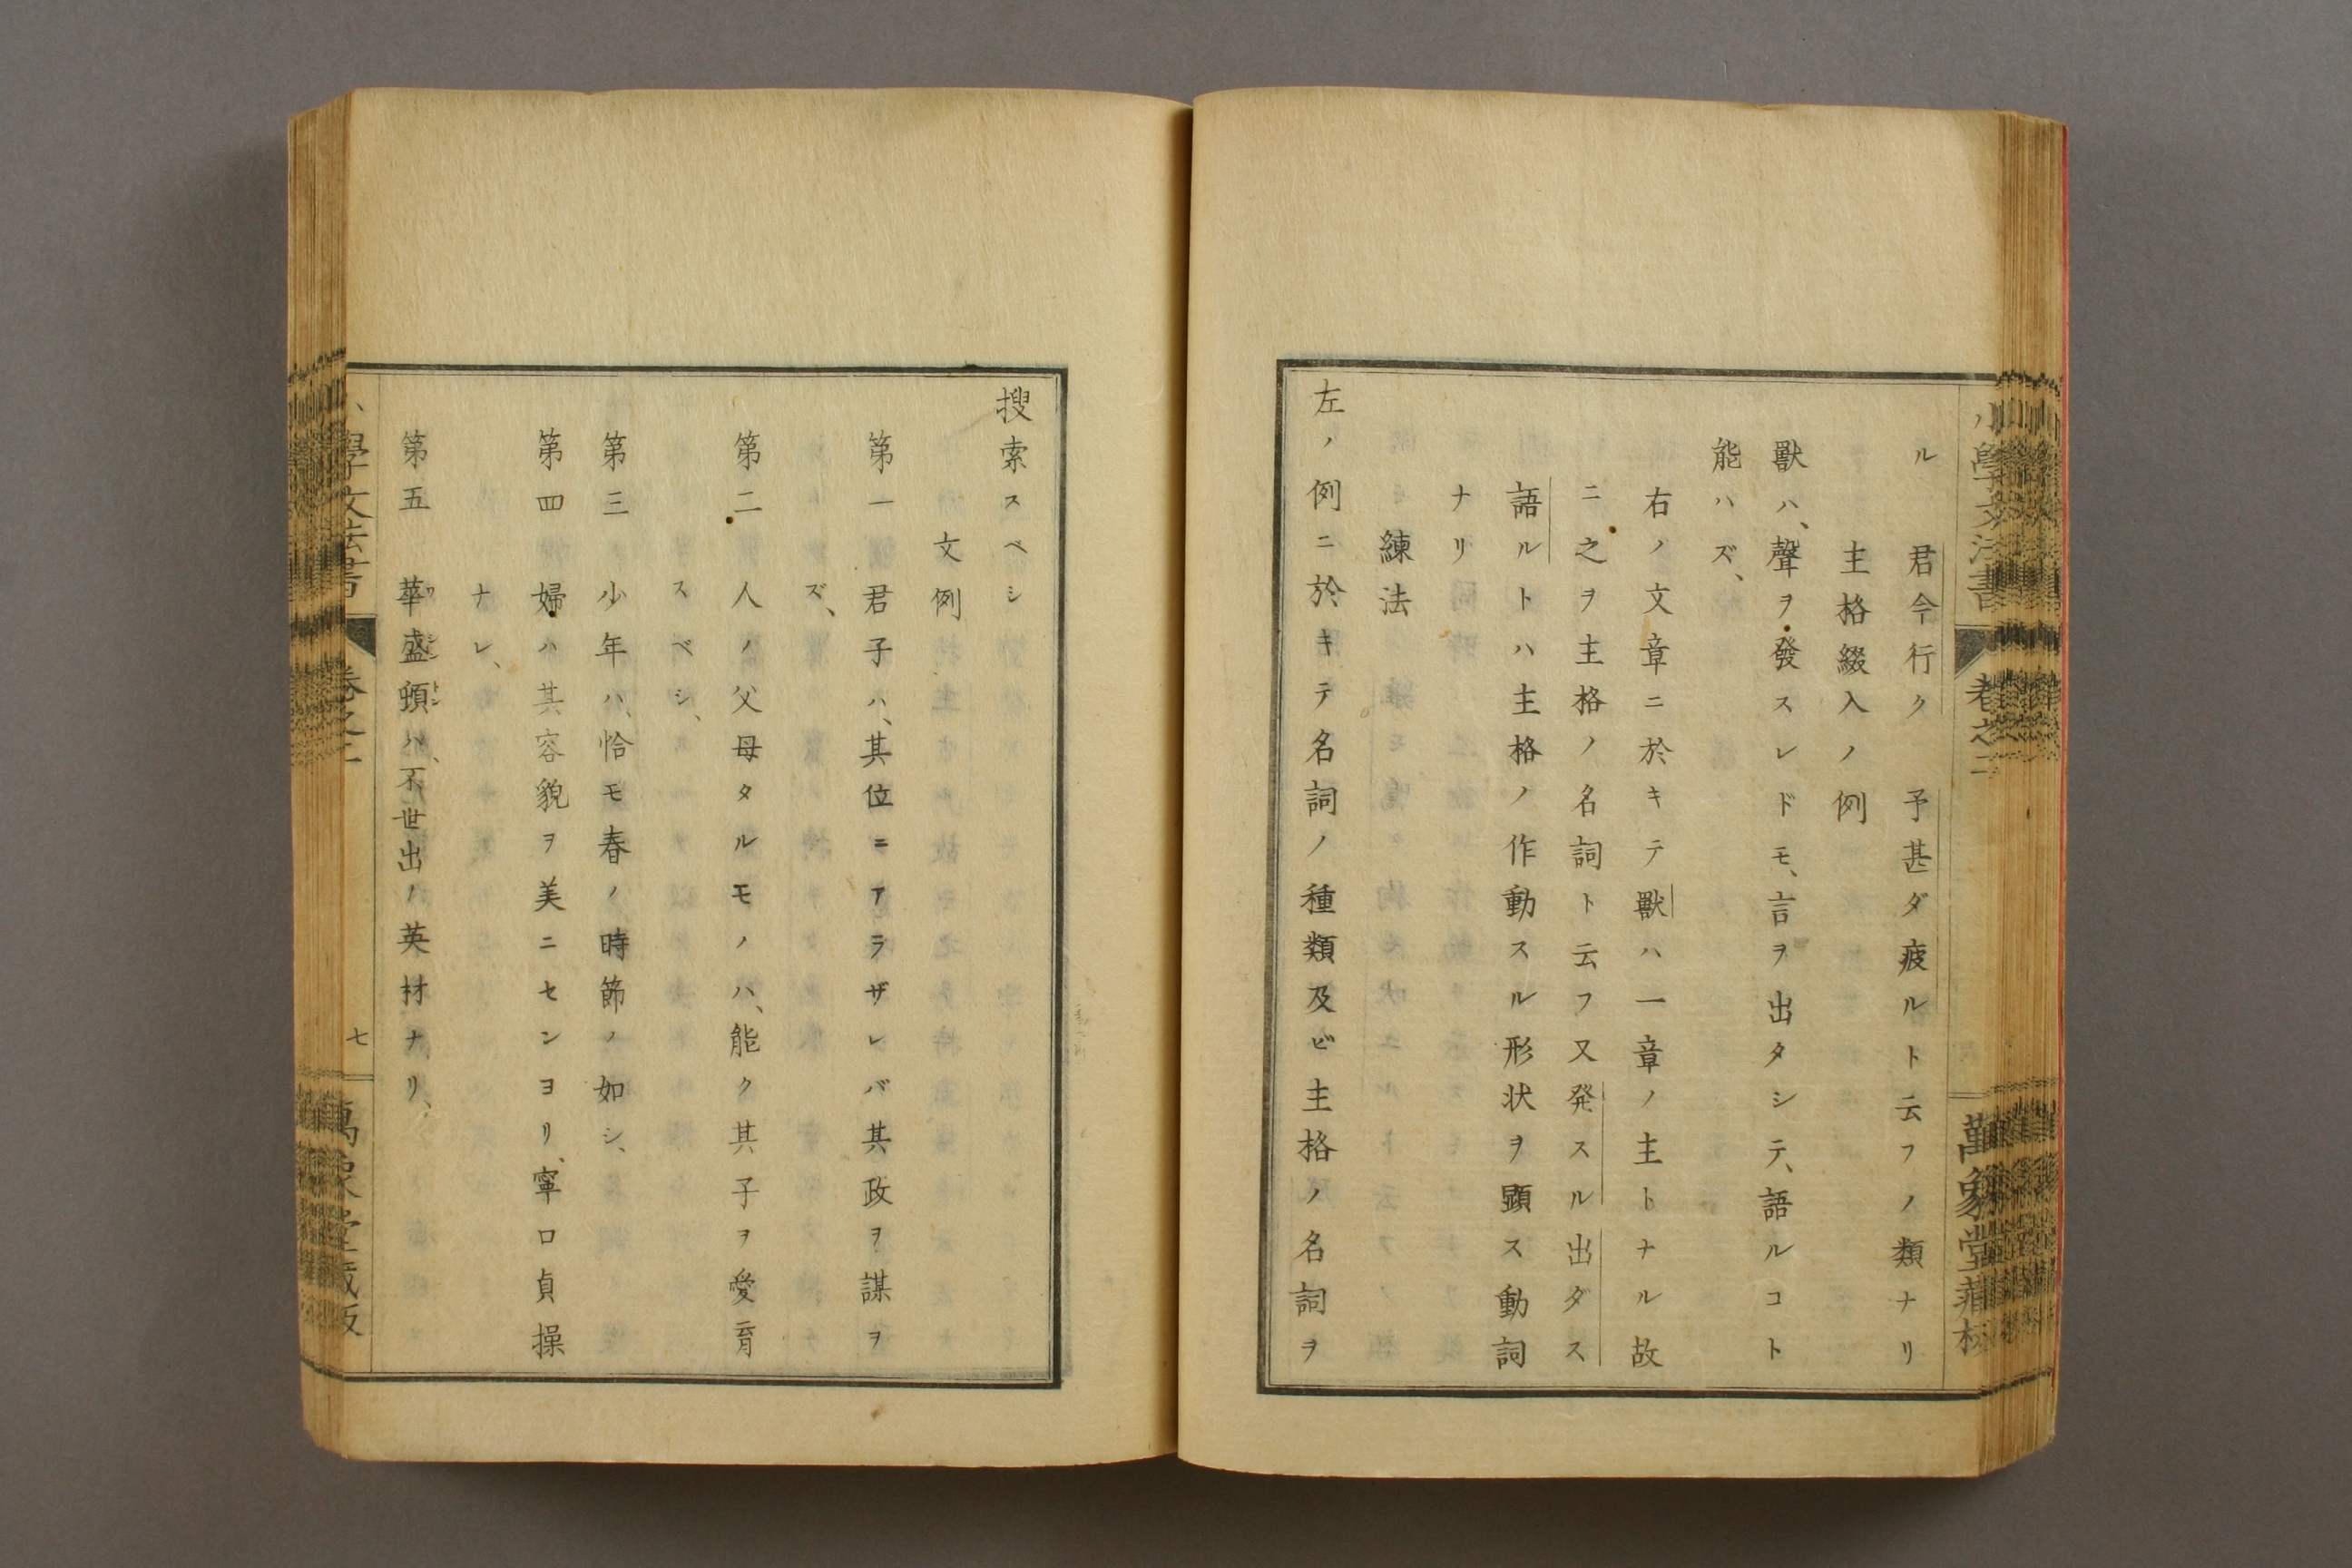 小學文法書 卷之二 萬象堂藏板
ル
君今行ク 予甚ダ疲ルト云フノ類ナリ
主格綴入ノ例
獸ハ、聲ヲ發スレドモ、言ヲ出タシテ、語ルコト
能ハズ、
右ノ文章ニ於キテ獸ハ一章ノ主トナル故
ニ之ヲ主格ノ名詞ト云フ又発スル出ダス
語ルトハ主格ノ作動スル形状ヲ顕ス動詞
ナリ
練法
左ノ例ニ於キテ名詞ノ種類及ビ主格ノ名詞ヲ
搜索スベシ
文例
第一 君子ハ、其位ニアラザレバ其政ヲ謀ヲ
ズ、
第二 人ノ父母タルモノハ、能ク其子ヲ愛育
スベシ、
第三 少年ハ、恰モ春ノ時節ノ如シ、
第四 婦ハ其容貌ヲ美ニセンヨリ、寧ロ貞操
ナレ、
第五 華盛頓ハ、不世出ノ英材ナリ、
學文法書 卷之二 七 萬象堂藏版